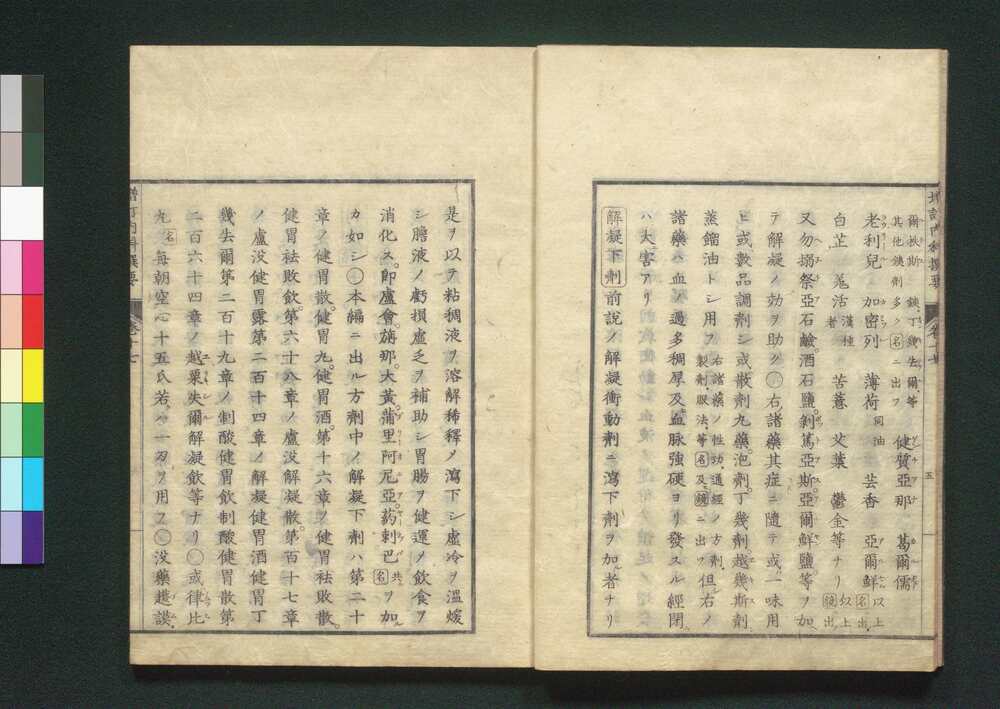 増訂内科撰要
卷十七
五
爾扶斯 鐵丁幾失爾等 健質亞那 葛爾儒
其他鐵劑多ク名ニ出ツ
老利兒 加密列 薄荷同油 芸香 亞爾鮮以上名出
白芷 羌活漢種者 苦薏 艾葉 鬱金等ナリ以上鏡出
又勿搦祭亞石鹼酒石鹽剝篤亞斯亞爾鮮鹽等ヲ加
テ解凝ノ効ヲ助ク○右諸藥其症ニ隨テ或一味用
ヒ或數品調劑シ或散劑丸藥泡劑丁幾劑越幾斯劑
蒸餾油トシ用フ右諸藥ノ性功通經ノ方劑製劑服法等名及鏡ニ出ツ但右ノ
諸藥ハ血ノ過多稠厚及血脉強硬ヨリ發スル經閉
ハ大害アリ
解凝下劑 前說ノ解凝衝動劑ニ瀉下劑ヲ加ル者ナリ
是ヲ以テ粘稠液ヲ溶解稀釋ノ瀉下シ虛冷ヲ溫煖
シ膽液ノ虧損虛乏ヲ補助シ胃腸ヲ健運メ飲食ヲ
消化ス即盧會旃那大黃蒲里阿尼亞葯剌巴共名ヲ加ル
カ如シ○本編ニ出ル方劑中ノ解凝下劑ハ第二十
章ノ健胃散健胃丸健胃酒第十六章ノ健胃祛敗散
健胃祛敗飲第六十八章ノ盧沒解凝散第百十七章
ノ盧沒健胃露第二百十四章ノ解凝健胃酒健胃丁
幾失爾第二百十九章ノ制酸健胃飲制酸健胃散第
二百六十四章ノ越栗失爾解凝飲等ナリ○或律比
丸名每朝空心十五氏若ハ一刄ヲ用フ○沒藥越謨
増訂内科撰要
卷十七